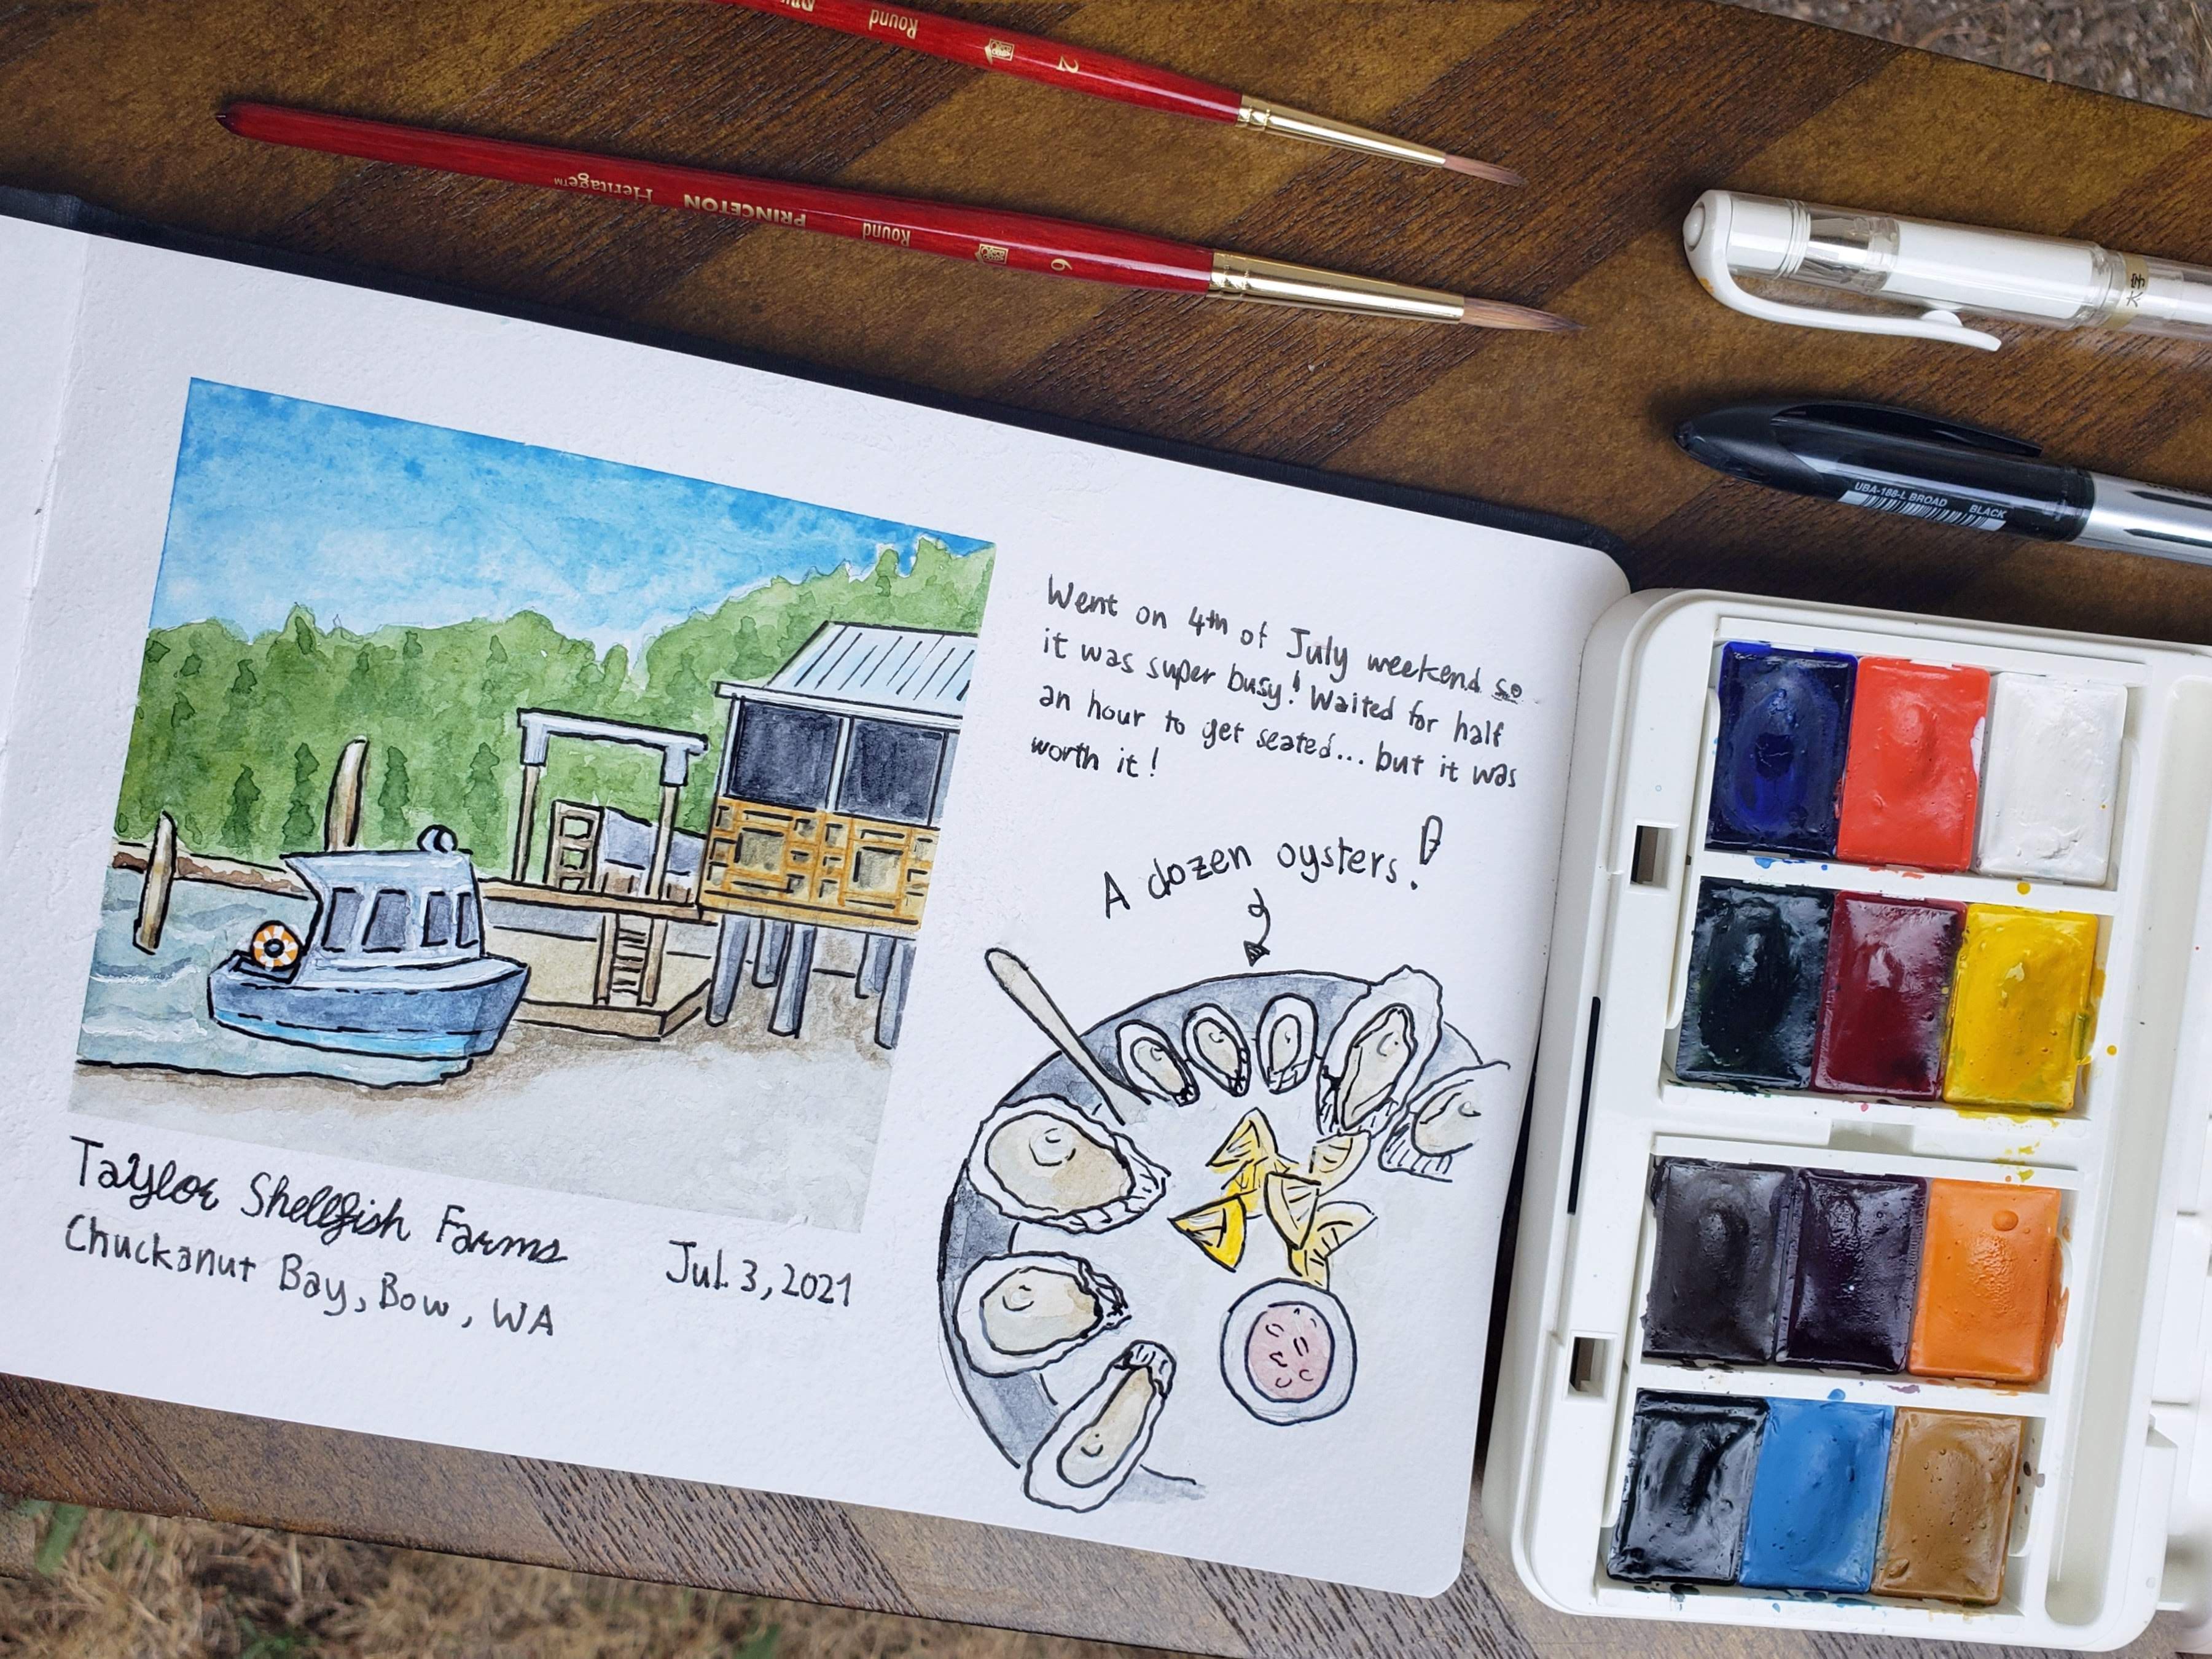 Round
2
Heritage™
PRINCETON
Round
6
太字
UBA-188-L BROAD
BLACK
Went on 4th of July weekend so
it was super busy! Waited for half
an hour to get seated... but it was
worth it!
A dozen oysters!
Taylor Shellfish Farms
Chuckanut Bay, Bow, WA
Jul. 3, 2021